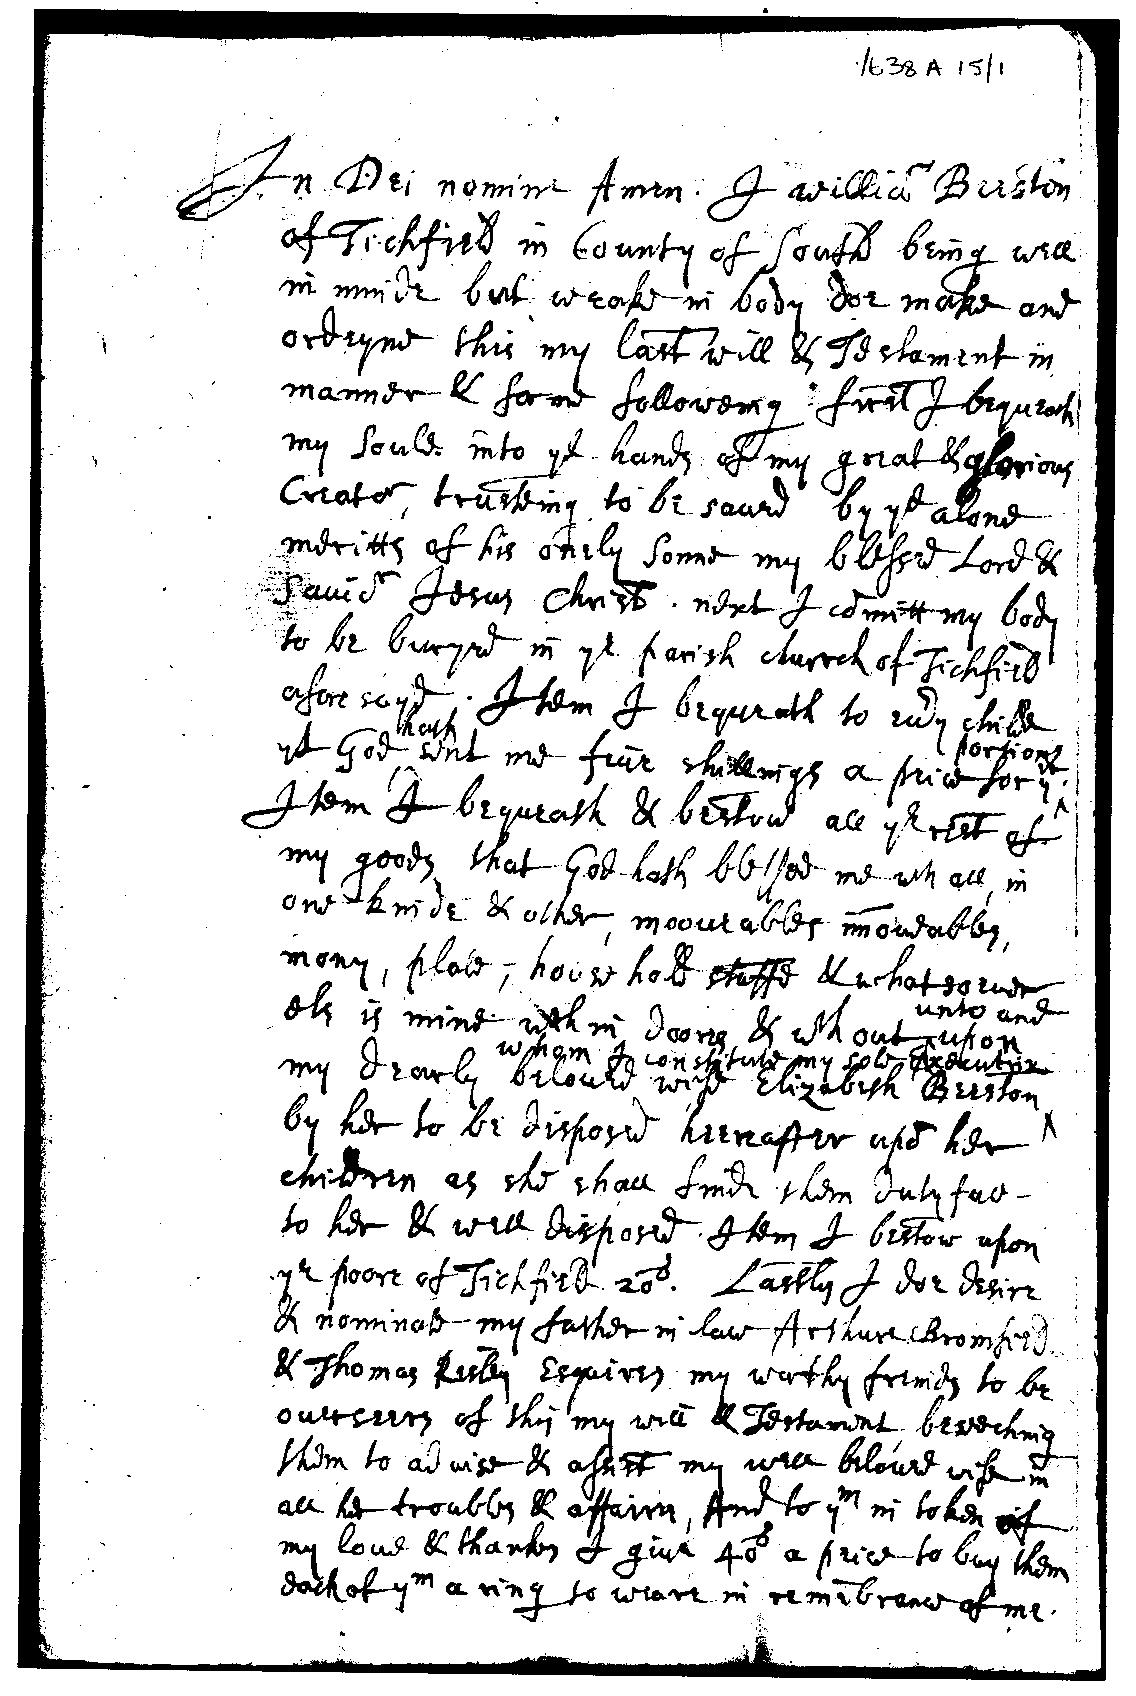 1638 A 15/1
In Dei nomine Amen. I williã Beeston
of Tichfield in County of South being well
in minde but weake in body doe make and
ordeyne this my last will & Testament in
manner & forme following first I bequeath
my soule into ye hands of my great & glorious
Creator, trusteing to be saued by ye alone
meritts of his onely Sonne my blessed Lord &
Saviõr Jesus Christ. next I cõmitt my body
to be buryed in ye parish church of Tichfield
afore sayd. Item I bequeath to euy childe
yt God hath sent me fiue shillings a peice for yr portions
Item I bequeath & bestow all ye rest of
my goods that God hath blessed me wth all, in
one kinde & other, mooueables immoueables,
mony, plate, house hold stuffe & whatsoeuer
els is mine with in doores & wthout unto and upon
my dearly beloued wife Elizabeth Beeston whom I constitute my sole executrix
by her to be disposed heereafter upõ her
children as she shall finde them duty full
to her & well disposed. Item I bestow upon
ye poore of Tichfield 20s. Lastly I doe desire
& nominate my father in law Arthure Bromfield
& Thomas Esquires my worthy freinds to be
ouerseers of this my will & Testament, beseeching
them to advise & assist my well beloued wife in
all her troubles & affaires, And to ym in token of
my loue & thankes I giue 40s a peice to buy them
each of ym a ring to weare in remẽbrance of me.